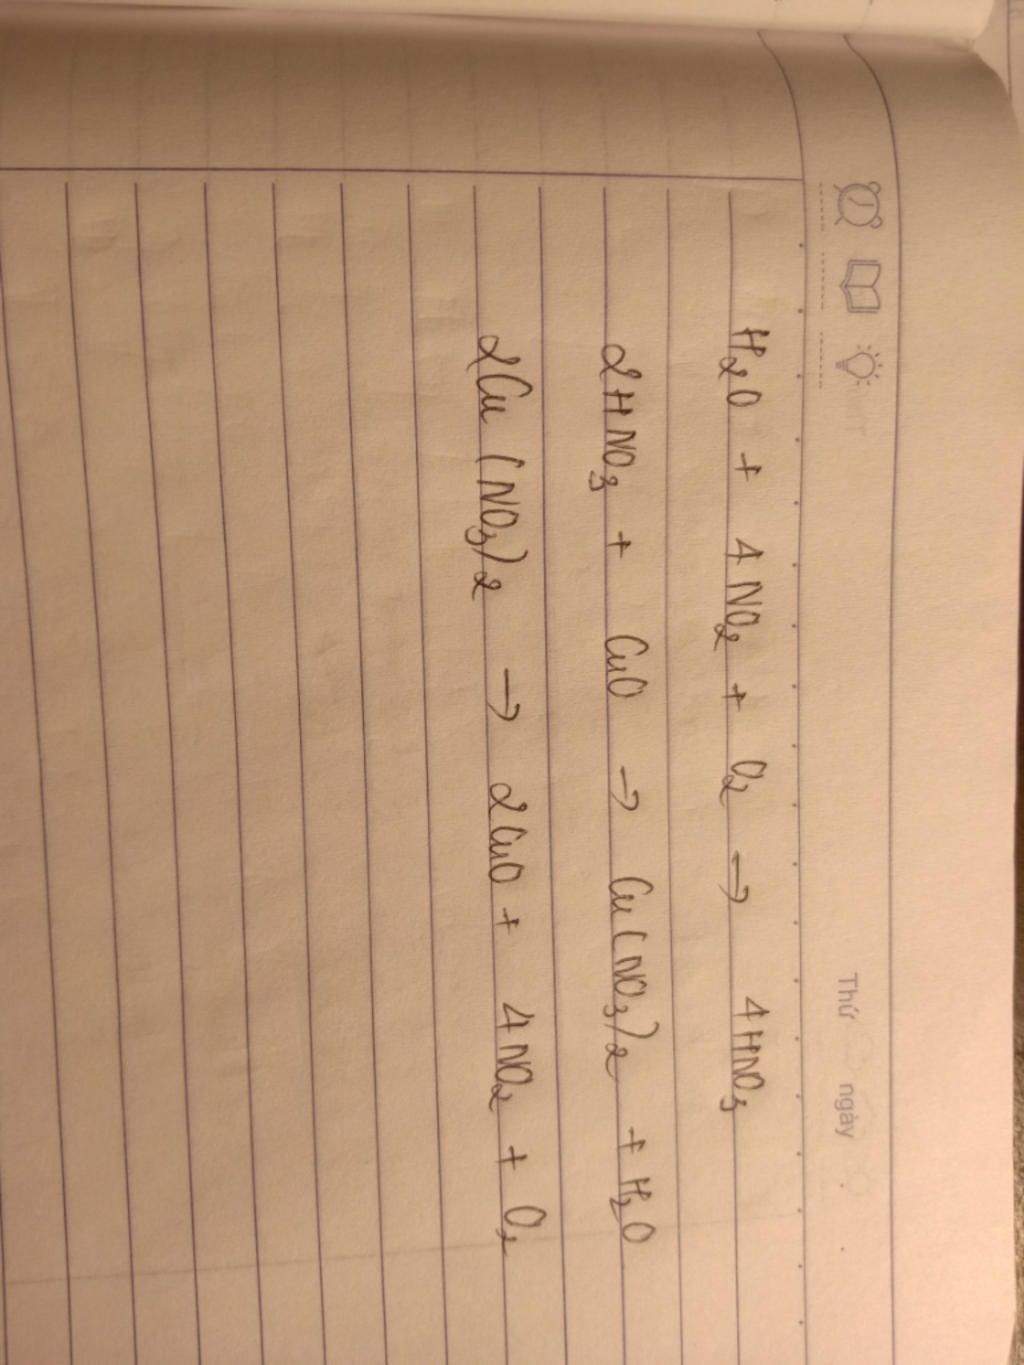 Thứ ngày
H₂O + 4NO₂ + O₂ → 4HNO₃
2HNO₃ + CuO → Cu(NO₃)₂ + H₂O
2Cu(NO₃)₂ → 2CuO + 4NO₂ + O₂